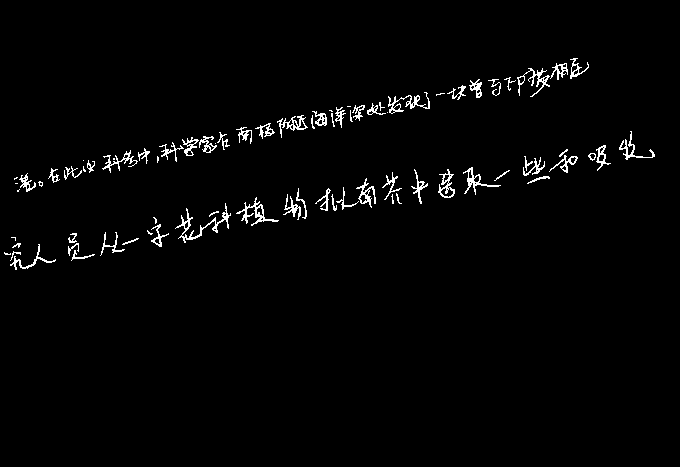 湛。在此次科考中,科学家在南极附近海洋深处发现了一块曾与印度相连
究人员从十字花科植物拟南芥中选取一些和吸收